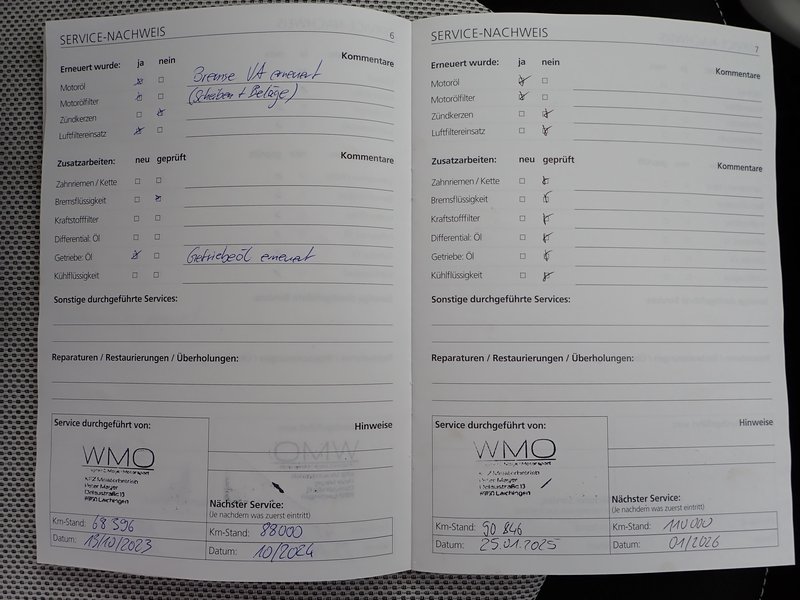 SERVICE-NACHWEIS 6
Erneuert wurde: ja nein Kommentare
Motoröl Bremse VA erneuert
Motorölfilter (Scheiben + Beläge)
Zündkerzen
Luftfiltereinsatz
Zusatzarbeiten: neu geprüft Kommentare
Zahnriemen / Kette
Bremsflüssigkeit
Kraftstofffilter
Differential: Öl
Getriebe: Öl Getriebeöl erneuert
Kühlflüssigkeit
Sonstige durchgeführte Services:
Reparaturen / Restaurierungen / Überholungen:
Service durchgeführt von: Hinweise
WMO
KFZ Meisterbetrieb
Peter Mayer
Laichingen
Nächster Service:
(Je nachdem was zuerst eintritt)
Km-Stand: 68 396 Km-Stand: 88000
Datum: 13/10/2023 Datum: 10/2024
SERVICE-NACHWEIS 7
Erneuert wurde: ja nein Kommentare
Motoröl
Motorölfilter
Zündkerzen
Luftfiltereinsatz
Zusatzarbeiten: neu geprüft Kommentare
Zahnriemen / Kette
Bremsflüssigkeit
Kraftstofffilter
Differential: Öl
Getriebe: Öl
Kühlflüssigkeit
Sonstige durchgeführte Services:
Reparaturen / Restaurierungen / Überholungen:
Service durchgeführt von: Hinweise
WMO
KFZ Meisterbetrieb
Peter Mayer
Laichingen
Nächster Service:
(Je nachdem was zuerst eintritt)
Km-Stand: 90 846 Km-Stand: 110 000
Datum: 25.01.2025 Datum: 01/2026